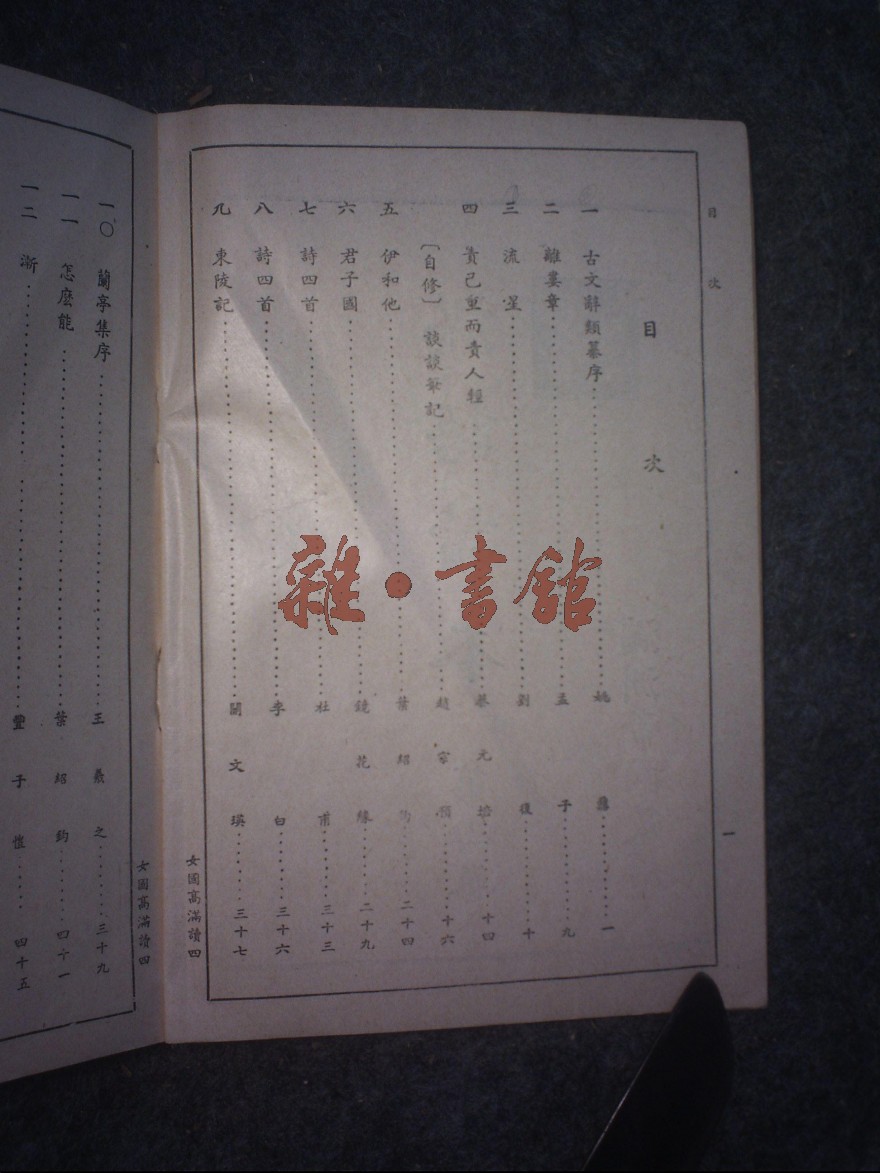 目次
一
目次
一 古文辭類纂序 姚鼐 一
二 離婁章 孟子 九
三 流星 劉復 十
四 責己重而責人輕 蔡元培 十四
〔自修〕 談談筆記 趙宗預 十六
五 伊和他 葉紹鈞 二十四
六 君子國 鏡花緣 二十九
七 詩四首 杜甫 三十三
八 詩四首 李白 三十六
九 東陵記 關文瑛 三十七
女國高滿讀四
女國高滿讀四
一〇 蘭亭集序 王羲之 三十九
一一 怎麽能 葉紹鈞 四十一
一二 漸 豐子愷 四十五
雜·書館